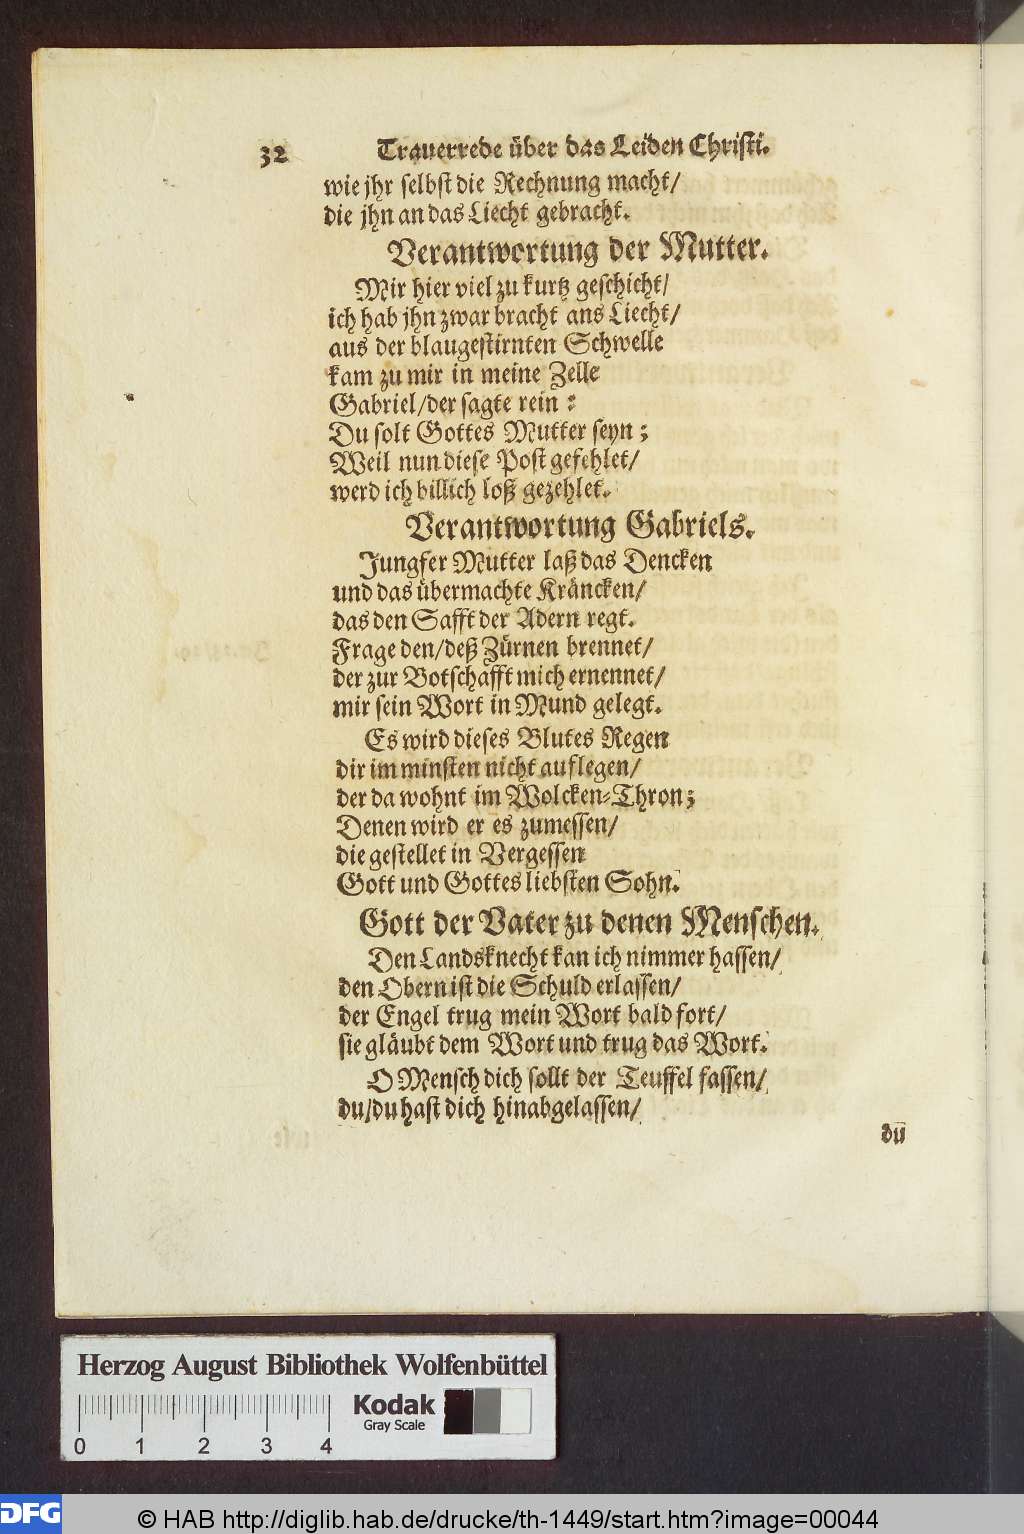 32 Trauerrede über das Leiden Christi.
wie jhr selbst die Rechnung macht/
die jhn an das Liecht gebracht.
Verantwortung der Mutter.
Mir hier viel zu kurtz geschicht/
ich hab jhn zwar bracht ans Liecht/
aus der blaugestirnten Schwelle
kam zu mir in meine Zelle
Gabriel/der sagte rein:
Du solt Gottes Mutter seyn;
Weil nun diese Post gefehlet/
werd ich billich loß gezehlet.
Verantwortung Gabriels.
Jungfer Mutter laß das Dencken
und das übermachte Kräncken/
das den Safft der Adern regt.
Frage den/deß Zürnen brennet/
der zur Botschafft mich ernennet/
mir sein Wort in Mund gelegt.
Es wird dieses Blutes Regen
dir im minsten nicht auflegen/
der da wohnt im Wolcken-Thron;
Denen wird er es zumessen/
die gestellet in Vergessen
Gott und Gottes liebsten Sohn.
Gott der Vater zu denen Menschen.
Den Landsknecht kan ich nimmer hassen/
den Obern ist die Schuld erlassen/
der Engel trug mein Wort bald fort/
sie gläubt dem Wort und trug das Wort.
O Mensch dich sollt der Teuffel fassen/
du/du hast dich hinabgelassen/
du
Herzog August Bibliothek Wolfenbüttel
Kodak
Gray Scale
0 1 2 3 4
DFG
© HAB http://diglib.hab.de/drucke/th-1449/start.htm?image=00044